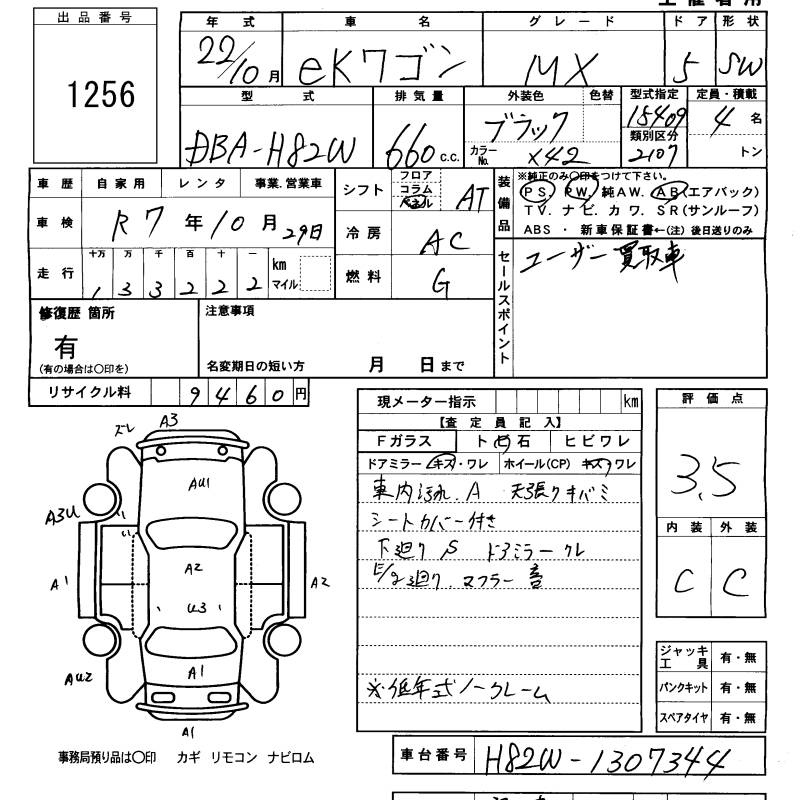 出品番号
1256
年式 車名 グレード ドア 形状
22/10月 eKワゴン MX 5 SW
型式 排気量 外装色 色替 型式指定 定員・積載
DBA-H82W 660 C.C. ブラック 15409 4 名
カラーNo. X42 類別区分 2107 トン
車歴 自家用 レンタ 事業.営業車
シフト フロア コラム パネル AT
車検 R7年10月29日
冷房 AC
走行 十万 万 千 百 十 一 km マイル
1 3 3 2 2 2
燃料 G
装備品 ※純正のみ○印をつけて下さい。
PS PW 純AW. AB(エアバック)
TV. ナビ. カワ. SR(サンルーフ)
ABS ・ 新車保証書←(注)後日送りのみ
セールスポイント
ユーザー買取車
修復歴 箇所
有
(有の場合は○印を)
注意事項
名変期日の短い方 月 日まで
リサイクル料 9460円
現メーター指示 km
【査定員記入】
Fガラス ト石 ヒビワレ
ドアミラー キズ・ワレ ホイール(CP) キズ・ワレ
車内汚れ.A 天張りキバミ
シートカバー付き
下廻り S ドアミラー
廻り.マフラー音
※低年式ノークレーム
評価点
3.5
内装 外装
C C
ジャッキ工具 有・無
パンクキット 有・無
スペアタイヤ 有・無
ズレ A3
AU1
A3U
A2
A1
A2
U3
AU2
A1
A1
事務局預り品は○印 カギ リモコン ナビロム
車台番号 H82W-1307344